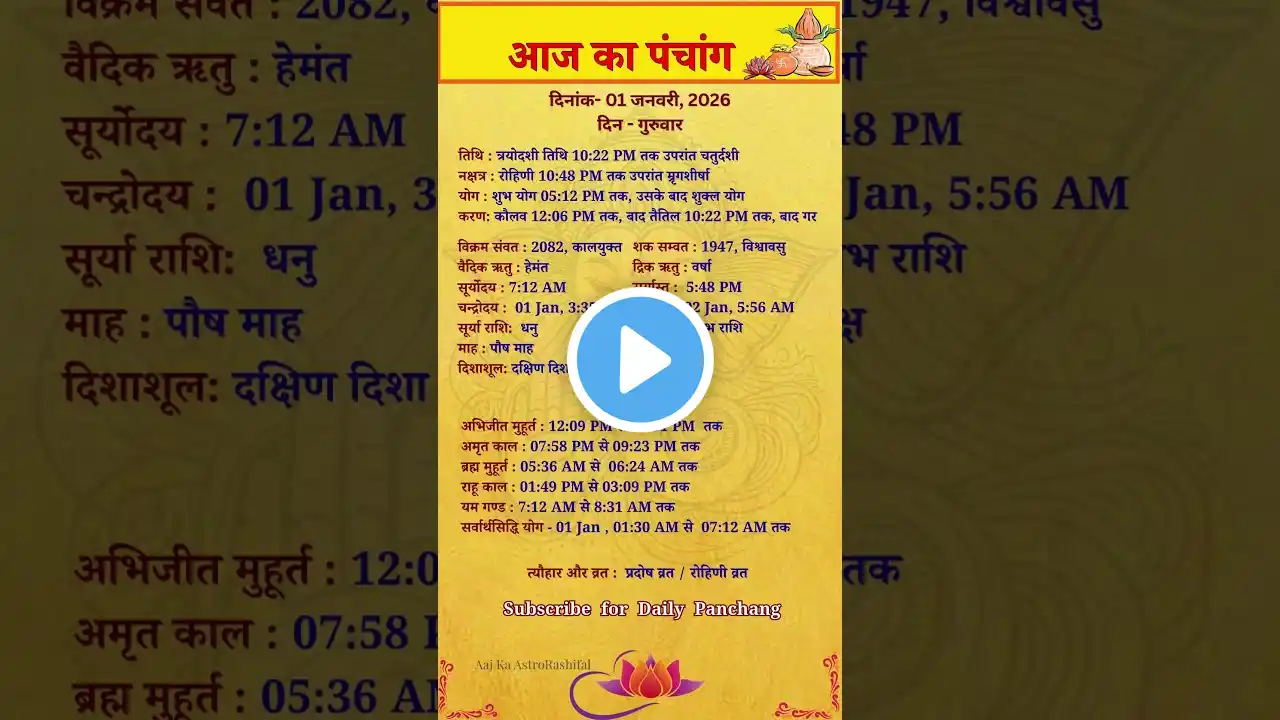 आज का पंचांग
दिनांक- 01 जनवरी, 2026
दिन - गुरुवार
तिथि : त्रयोदशी तिथि 10:22 PM तक उपरांत चतुर्दशी
नक्षत्र : रोहिणी 10:48 PM तक उपरांत म्रृगशीर्षा
योग : शुभ योग 05:12 PM तक, उसके बाद शुक्ल योग
करण: कौलव 12:06 PM तक, बाद तैतिल 10:22 PM तक, बाद गर
विक्रम संवत : 2082, कालयुक्त शक सम्वत : 1947, विश्वावसु
वैदिक ऋतु : हेमंत द्रिक ऋतु : वर्षा
सूर्योदय : 7:12 AM सूर्यास्त : 5:48 PM
चन्द्रोदय : 01 Jan, 02 Jan, 5:56 AM
सूर्या राशि: धनु राशि
माह : पौष माह
दिशाशूल: दक्षिण दिशा
अभिजीत मुहूर्त : 12:09 PM PM तक
अमृत काल : 07:58 PM से 09:23 PM तक
ब्रह्म मुहूर्त : 05:36 AM से 06:24 AM तक
राहू काल : 01:49 PM से 03:09 PM तक
यम गण्ड : 7:12 AM से 8:31 AM तक
सर्वार्थसिद्धि योग - 01 Jan , 01:30 AM से 07:12 AM तक
त्यौहार और व्रत : प्रदोष व्रत / रोहिणी व्रत
Subscribe for Daily Panchang
Aaj Ka AstroRashifal